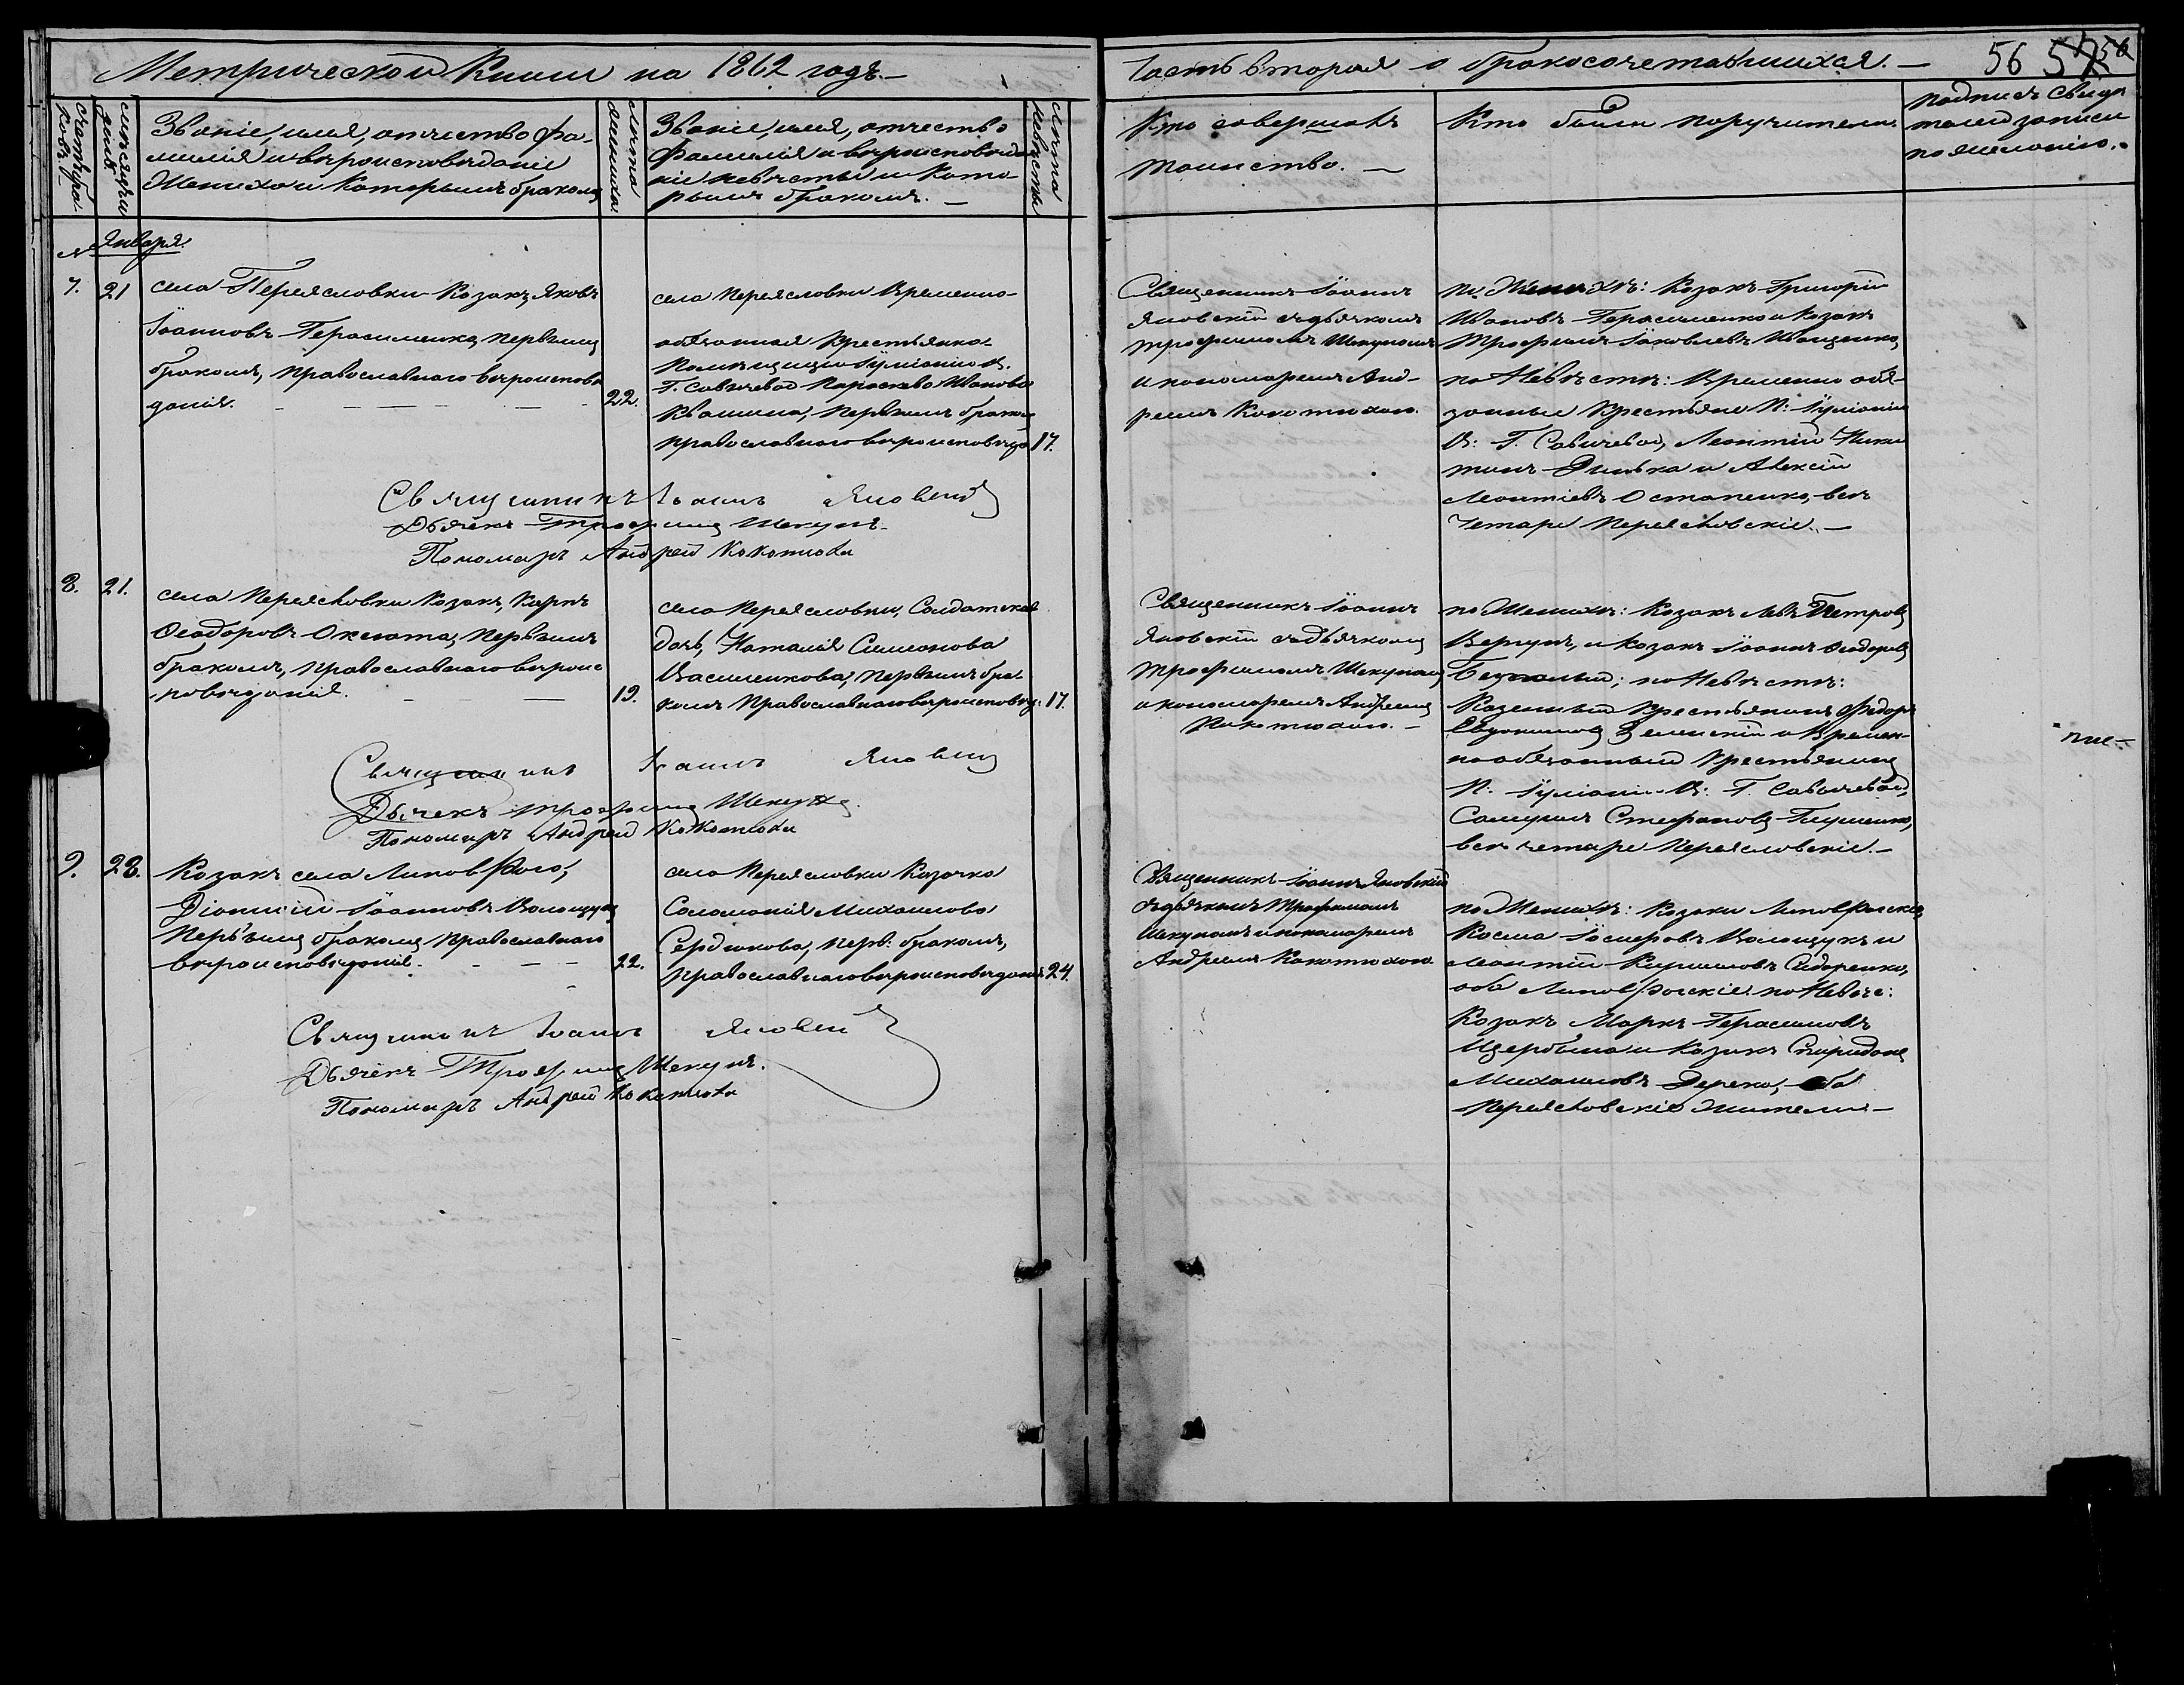 Метрической Книги на 1862 годъ.—
Часть вторая о бракосочетавшихся.—
56
Счетъ бра-
ковъ.
Мѣсяцъ и
день.
Званіе, имя, отчество фа-
милія и вѣроисповѣданіе
Жениха и которымъ бракомъ
Лѣта
жениха.
Званіе, имя, отчество
фамилія и вѣроисповѣда
ніе невѣсты и кото-
рымъ бракомъ.—
Лѣта
невѣсты
Кто совершалъ
таинство.—
Кто были поручители
подпись свидѣ
телей записи
по желанію.
Января.
7.
21
села Переясловки Козакъ Яковъ
Іоанновъ Герасименко, первымъ
бракомъ, православнаго вѣроисповѣ
данія.
22.
села Переясловки Временно-
обязанная Крестьянка
Помѣщицы Іуліаніи В.
Г. Савичевой Параскева Иванова
Квашина, первымъ бракомъ
православнаго вѣроисповѣда
17.
Священникъ Іоаннъ
Яновскій съ дьячкомъ
Трофимомъ Шекуномъ
и пономаремъ Анд-
реемъ Кокотюхою.
по Женихѣ: Козакъ Григорій
Ивановъ Герасименко и Козакъ
Трофимъ Іаковлевъ Иващенко,
по Невѣстѣ: Временно обя-
занные Крестьяне П: Іуліаніи
В: Г. Савичевой, Леонтій Ники
тинъ Динька и Алексій
Леонтіевъ Остапенко, всѣ
четыре Переясловскіе.—
Священникъ Іоаннъ Яновскій
Дьячекъ Трофимъ Шекунъ.
Пономарь Андрей Кокотюха
8.
21.
села Переясловки Козакъ, Карпъ
Ѳеодоровъ Оксюта, первымъ
бракомъ, православнаго вѣроис
повѣданія.
19.
села Переясловки, Солдатская
дочь, Наталія Симеонова
Василенкова, первымъ бра-
комъ православнаго вѣроисповѣд:
17.
Священникъ Іоаннъ
Яновскій съ дьячкомъ
Трофимомъ Шекуномъ
и пономаремъ Андреемъ
Кокотюхою.—
по Женихѣ: Козакъ Левъ Петровъ
Вергунъ, и Козакъ Іоаннъ Ѳеодоровъ
по Невѣстѣ:
Казенный Крестьянинъ Ѳедоръ
Евдокимовъ Зеленскій и Времен-
нообязанный Крестьянинъ
П: Іуліаніи В: Г. Савичевой,
Самуилъ Стефановъ Глущенко,
всѣ четыре Переясловскіе.—
Священникъ Іоаннъ Яновскій
Дьячекъ Трофимъ Шекунъ.
Пономарь Андрей Кокотюха
9.
22.
Козакъ села Липоврогого,
Діонисій Іоанновъ Волощукъ
первымъ бракомъ православнаго
вѣроисповѣданія.
22.
села Переясловки Козачка
Соломонія Михаилова
Сердюкова, перв: бракомъ,
православнаго вѣроисповѣданія
24.
Священникъ Іоаннъ Яновскій
съ дьячкомъ Трофимомъ
Шекуномъ и пономаремъ
Андреемъ Кокотюхою.
по Женихѣ: Козаки
Косма Волощукъ и
Леонтій Кириловъ Сидоренко,
оба по Невѣсте:
Козакъ Маркъ Герасимовъ
Щербина и Козакъ Спиридонъ
Михаиловъ Дереко, оба
Переясловскіе жители—
Священникъ Іоаннъ Яновскій
Дьячекъ Трофимъ Шекунъ.
Пономарь Андрей Кокотюха